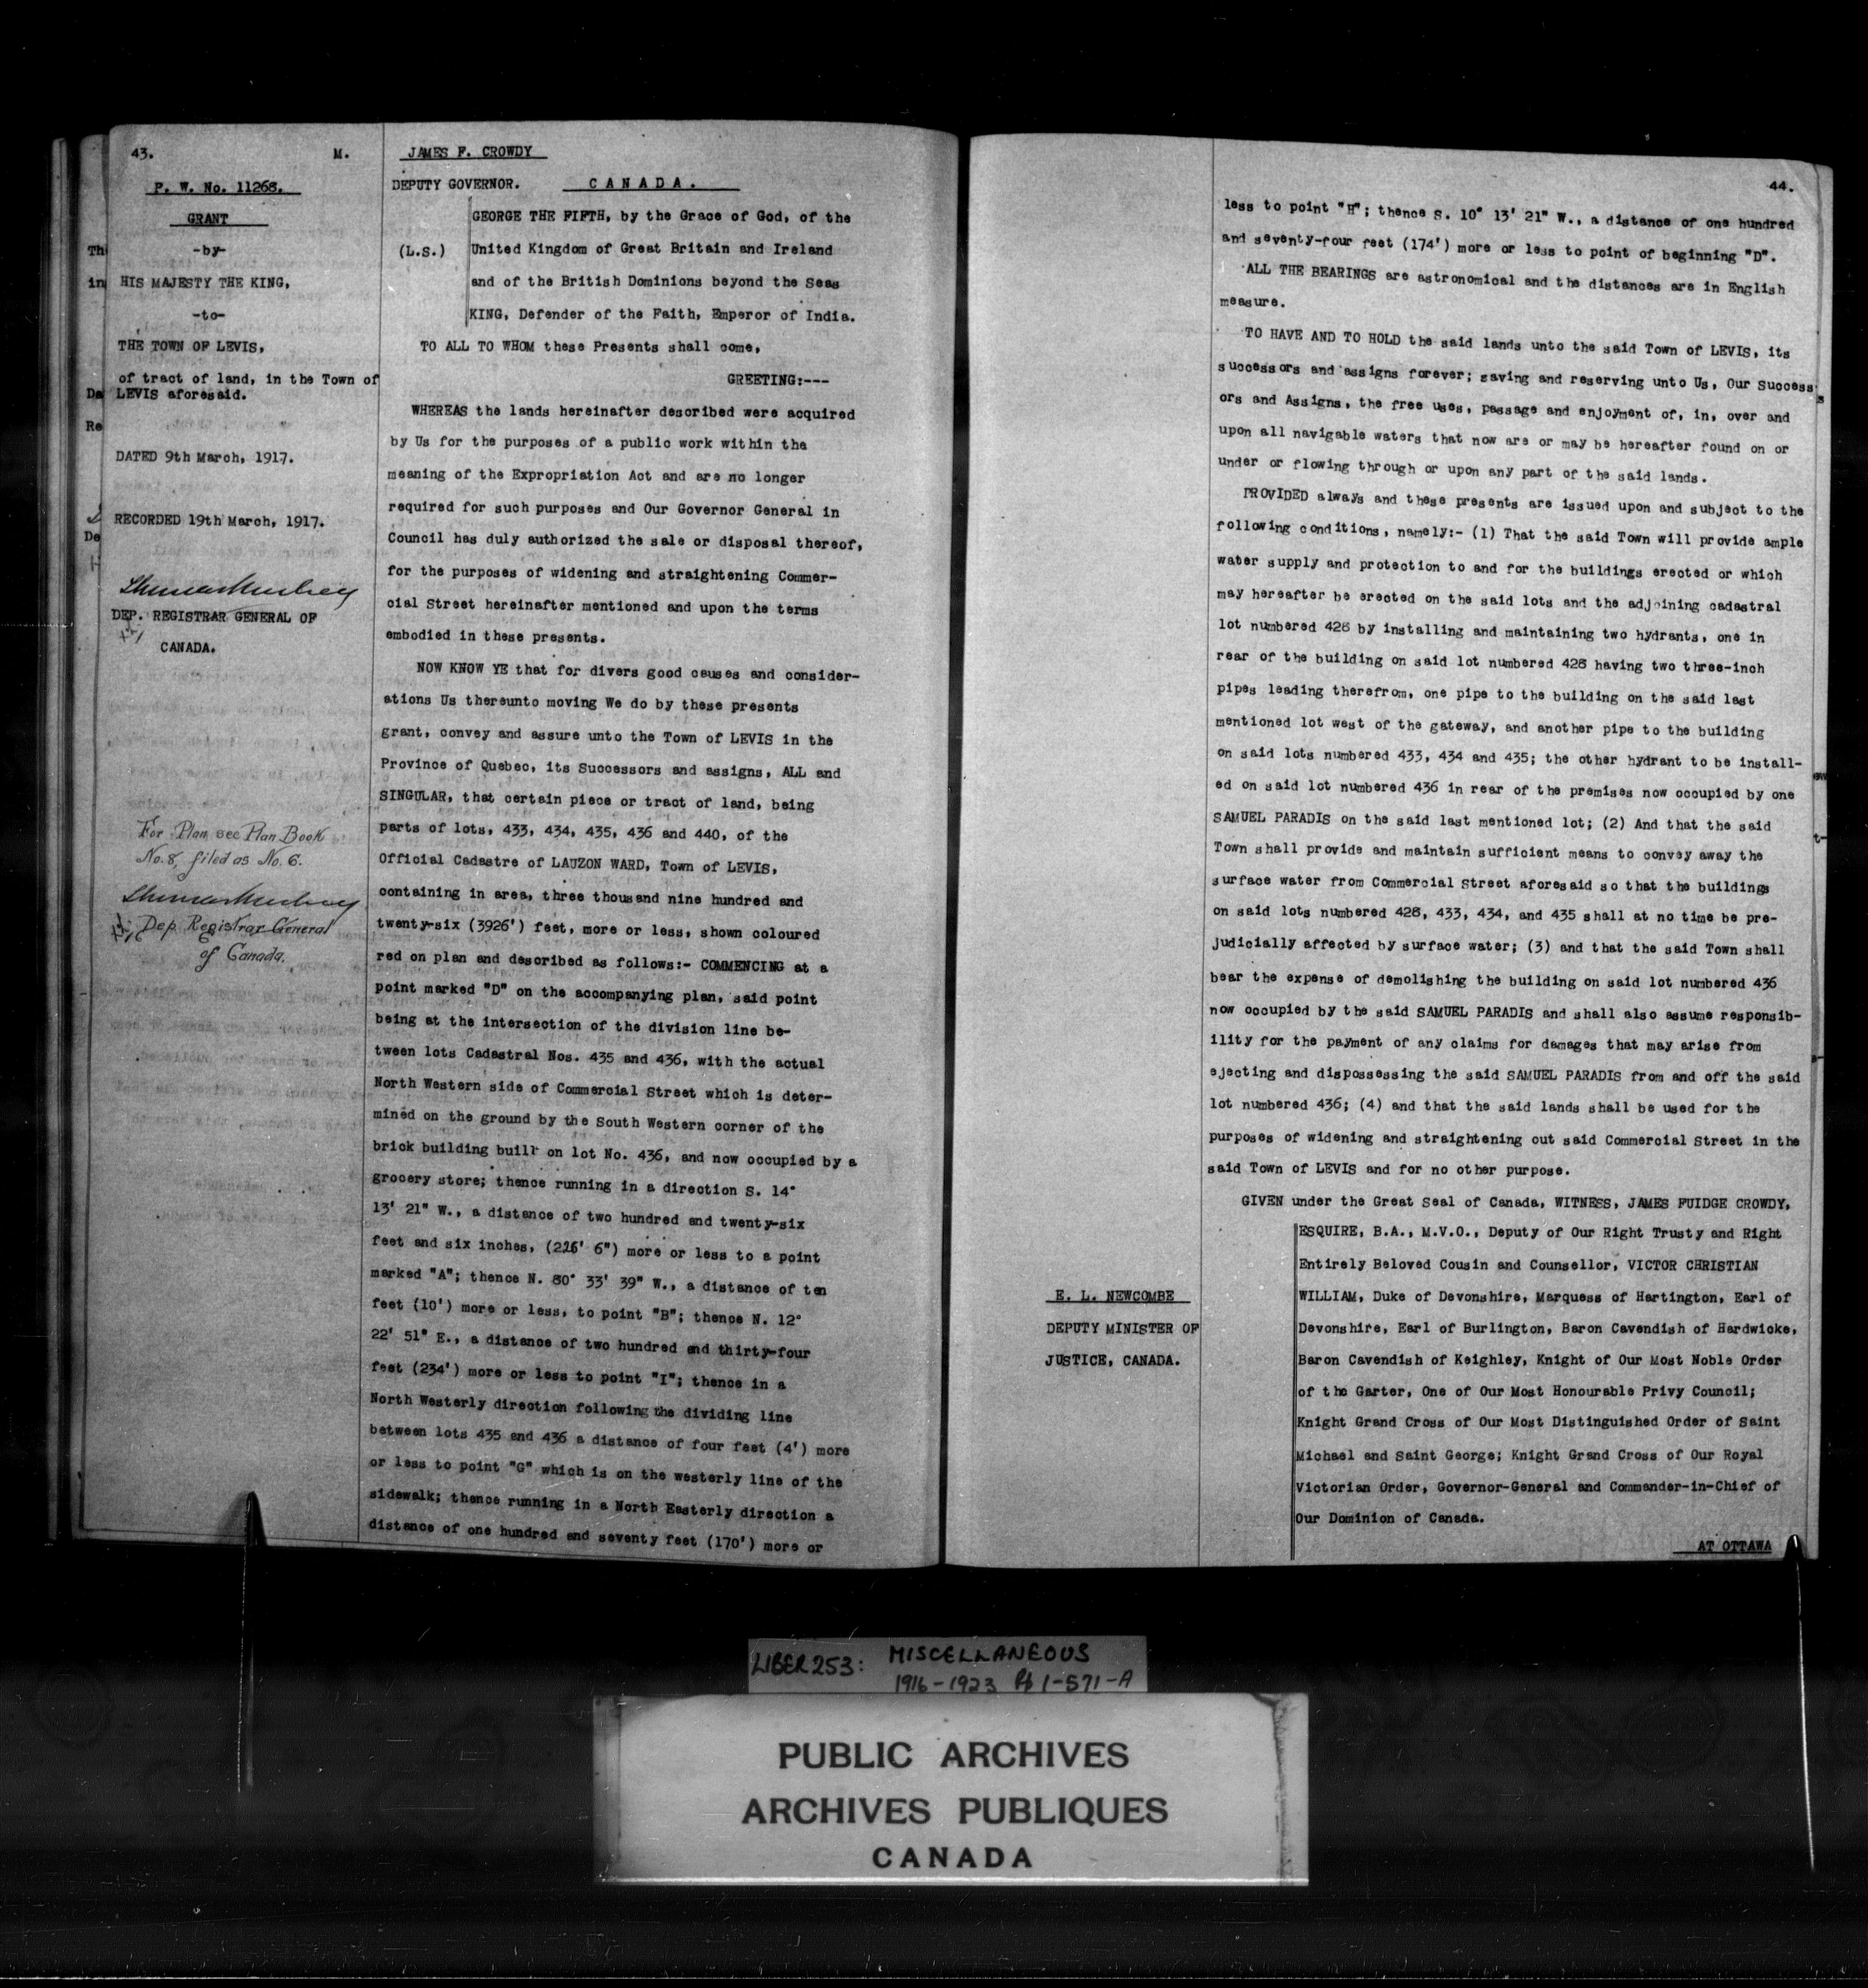 43.
M.
P. W. No. 11268.
GRANT
-by-
HIS MAJESTY THE KING,
-to-
THE TOWN OF LEVIS,
of tract of land, in the Town of
LEVIS aforesaid.
DATED 9th March, 1917.
RECORDED 19th March, 1917.
DEP. REGISTRAR GENERAL OF
CANADA.
For Plan see Plan Book
No. 8, filed as No. 6.
Dep. Registrar General
of Canada.
JAMES F. CROWDY
DEPUTY GOVERNOR. CANADA.
GEORGE THE FIFTH, by the Grace of God, of the
(L.S.) United Kingdom of Great Britain and Ireland
and of the British Dominions beyond the Seas
KING, Defender of the Faith, Emperor of India.
TO ALL TO WHOM these Presents shall come,
GREETING:---
WHEREAS the lands hereinafter described were acquired
by Us for the purposes of a public work within the
meaning of the Expropriation Act and are no longer
required for such purposes and Our Governor General in
Council has duly authorized the sale or disposal thereof,
for the purposes of widening and straightening Commer-
cial Street hereinafter mentioned and upon the terms
embodied in these presents.
NOW KNOW YE that for divers good causes and consider-
ations Us thereunto moving We do by these presents
grant, convey and assure unto the Town of LEVIS in the
Province of Quebec, its Successors and assigns, ALL and
SINGULAR, that certain piece or tract of land, being
parts of lots, 433, 434, 435, 436 and 440, of the
Official Cadastre of LAUZON WARD, Town of LEVIS,
containing in area, three thousand nine hundred and
twenty-six (3926') feet, more or less, shown coloured
red on plan and described as follows:- COMMENCING at a
point marked "D" on the accompanying plan, said point
being at the intersection of the division line be-
tween lots Cadastral Nos. 435 and 436, with the actual
North Western side of Commercial Street which is deter-
mined on the ground by the South Western corner of the
brick building built on lot No. 436, and now occupied by a
grocery store; thence running in a direction S. 14°
13' 21" W., a distance of two hundred and twenty-six
feet and six inches, (226' 6") more or less to a point
marked "A"; thence N. 80° 33' 39" W., a distance of ten
feet (10') more or less, to point "B"; thence N. 12°
22' 51" E., a distance of two hundred and thirty-four
feet (234') more or less to point "I"; thence in a
North Westerly direction following the dividing line
between lots 435 and 436 a distance of four feet (4') more
or less to point "G" which is on the westerly line of the
sidewalk; thence running in a North Easterly direction a
distance of one hundred and seventy feet (170') more or
44.
less to point "H"; thence S. 10° 13' 21" W., a distance of one hundred
and seventy-four feet (174') more or less to point of beginning "D".
ALL THE BEARINGS are astronomical and the distances are in English
measure.
TO HAVE AND TO HOLD the said lands unto the said Town of LEVIS, its
successors and assigns forever; saving and reserving unto Us, Our Success
ors and Assigns, the free uses, passage and enjoyment of, in, over and
upon all navigable waters that now are or may be hereafter found on or
under or flowing through or upon any part of the said lands.
PROVIDED always and these presents are issued upon and subject to the
following conditions, namely:- (1) That the said Town will provide ample
water supply and protection to and for the buildings erected or which
may hereafter be erected on the said lots and the adjoining cadastral
lot numbered 428 by installing and maintaining two hydrants, one in
rear of the building on said lot numbered 428 having two three-inch
pipes leading therefrom, one pipe to the building on the said last
mentioned lot west of the gateway, and another pipe to the building
on said lots numbered 433, 434 and 435; the other hydrant to be install-
ed on said lot numbered 436 in rear of the premises now occupied by one
SAMUEL PARADIS on the said last mentioned lot; (2) And that the said
Town shall provide and maintain sufficient means to convey away the
surface water from Commercial Street aforesaid so that the buildings
on said lots numbered 428, 433, 434, and 435 shall at no time be pre-
judicially affected by surface water; (3) and that the said Town shall
bear the expense of demolishing the building on said lot numbered 436
now occupied by the said SAMUEL PARADIS and shall also assume responsib-
ility for the payment of any claims for damages that may arise from
ejecting and dispossessing the said SAMUEL PARADIS from and off the said
lot numbered 436; (4) and that the said lands shall be used for the
purposes of widening and straightening out said Commercial Street in the
said Town of LEVIS and for no other purpose.
GIVEN under the Great Seal of Canada, WITNESS, JAMES FUIDGE CROWDY,
ESQUIRE, B.A., M.V.O., Deputy of Our Right Trusty and Right
Entirely Beloved Cousin and Counsellor, VICTOR CHRISTIAN
WILLIAM, Duke of Devonshire, Marquess of Hartington, Earl of
Devonshire, Earl of Burlington, Baron Cavendish of Hardwicke,
Baron Cavendish of Keighley, Knight of Our Most Noble Order
of the Garter, One of Our Most Honourable Privy Council;
Knight Grand Cross of Our Most Distinguished Order of Saint
Michael and Saint George; Knight Grand Cross of Our Royal
Victorian Order, Governor-General and Commander-in-Chief of
Our Dominion of Canada.
AT OTTAWA
E. L. NEWCOMBE
DEPUTY MINISTER OF
JUSTICE, CANADA.
LIBER 253: MISCELLANEOUS
1916-1923 Pp 1-571-A
PUBLIC ARCHIVES
ARCHIVES PUBLIQUES
CANADA